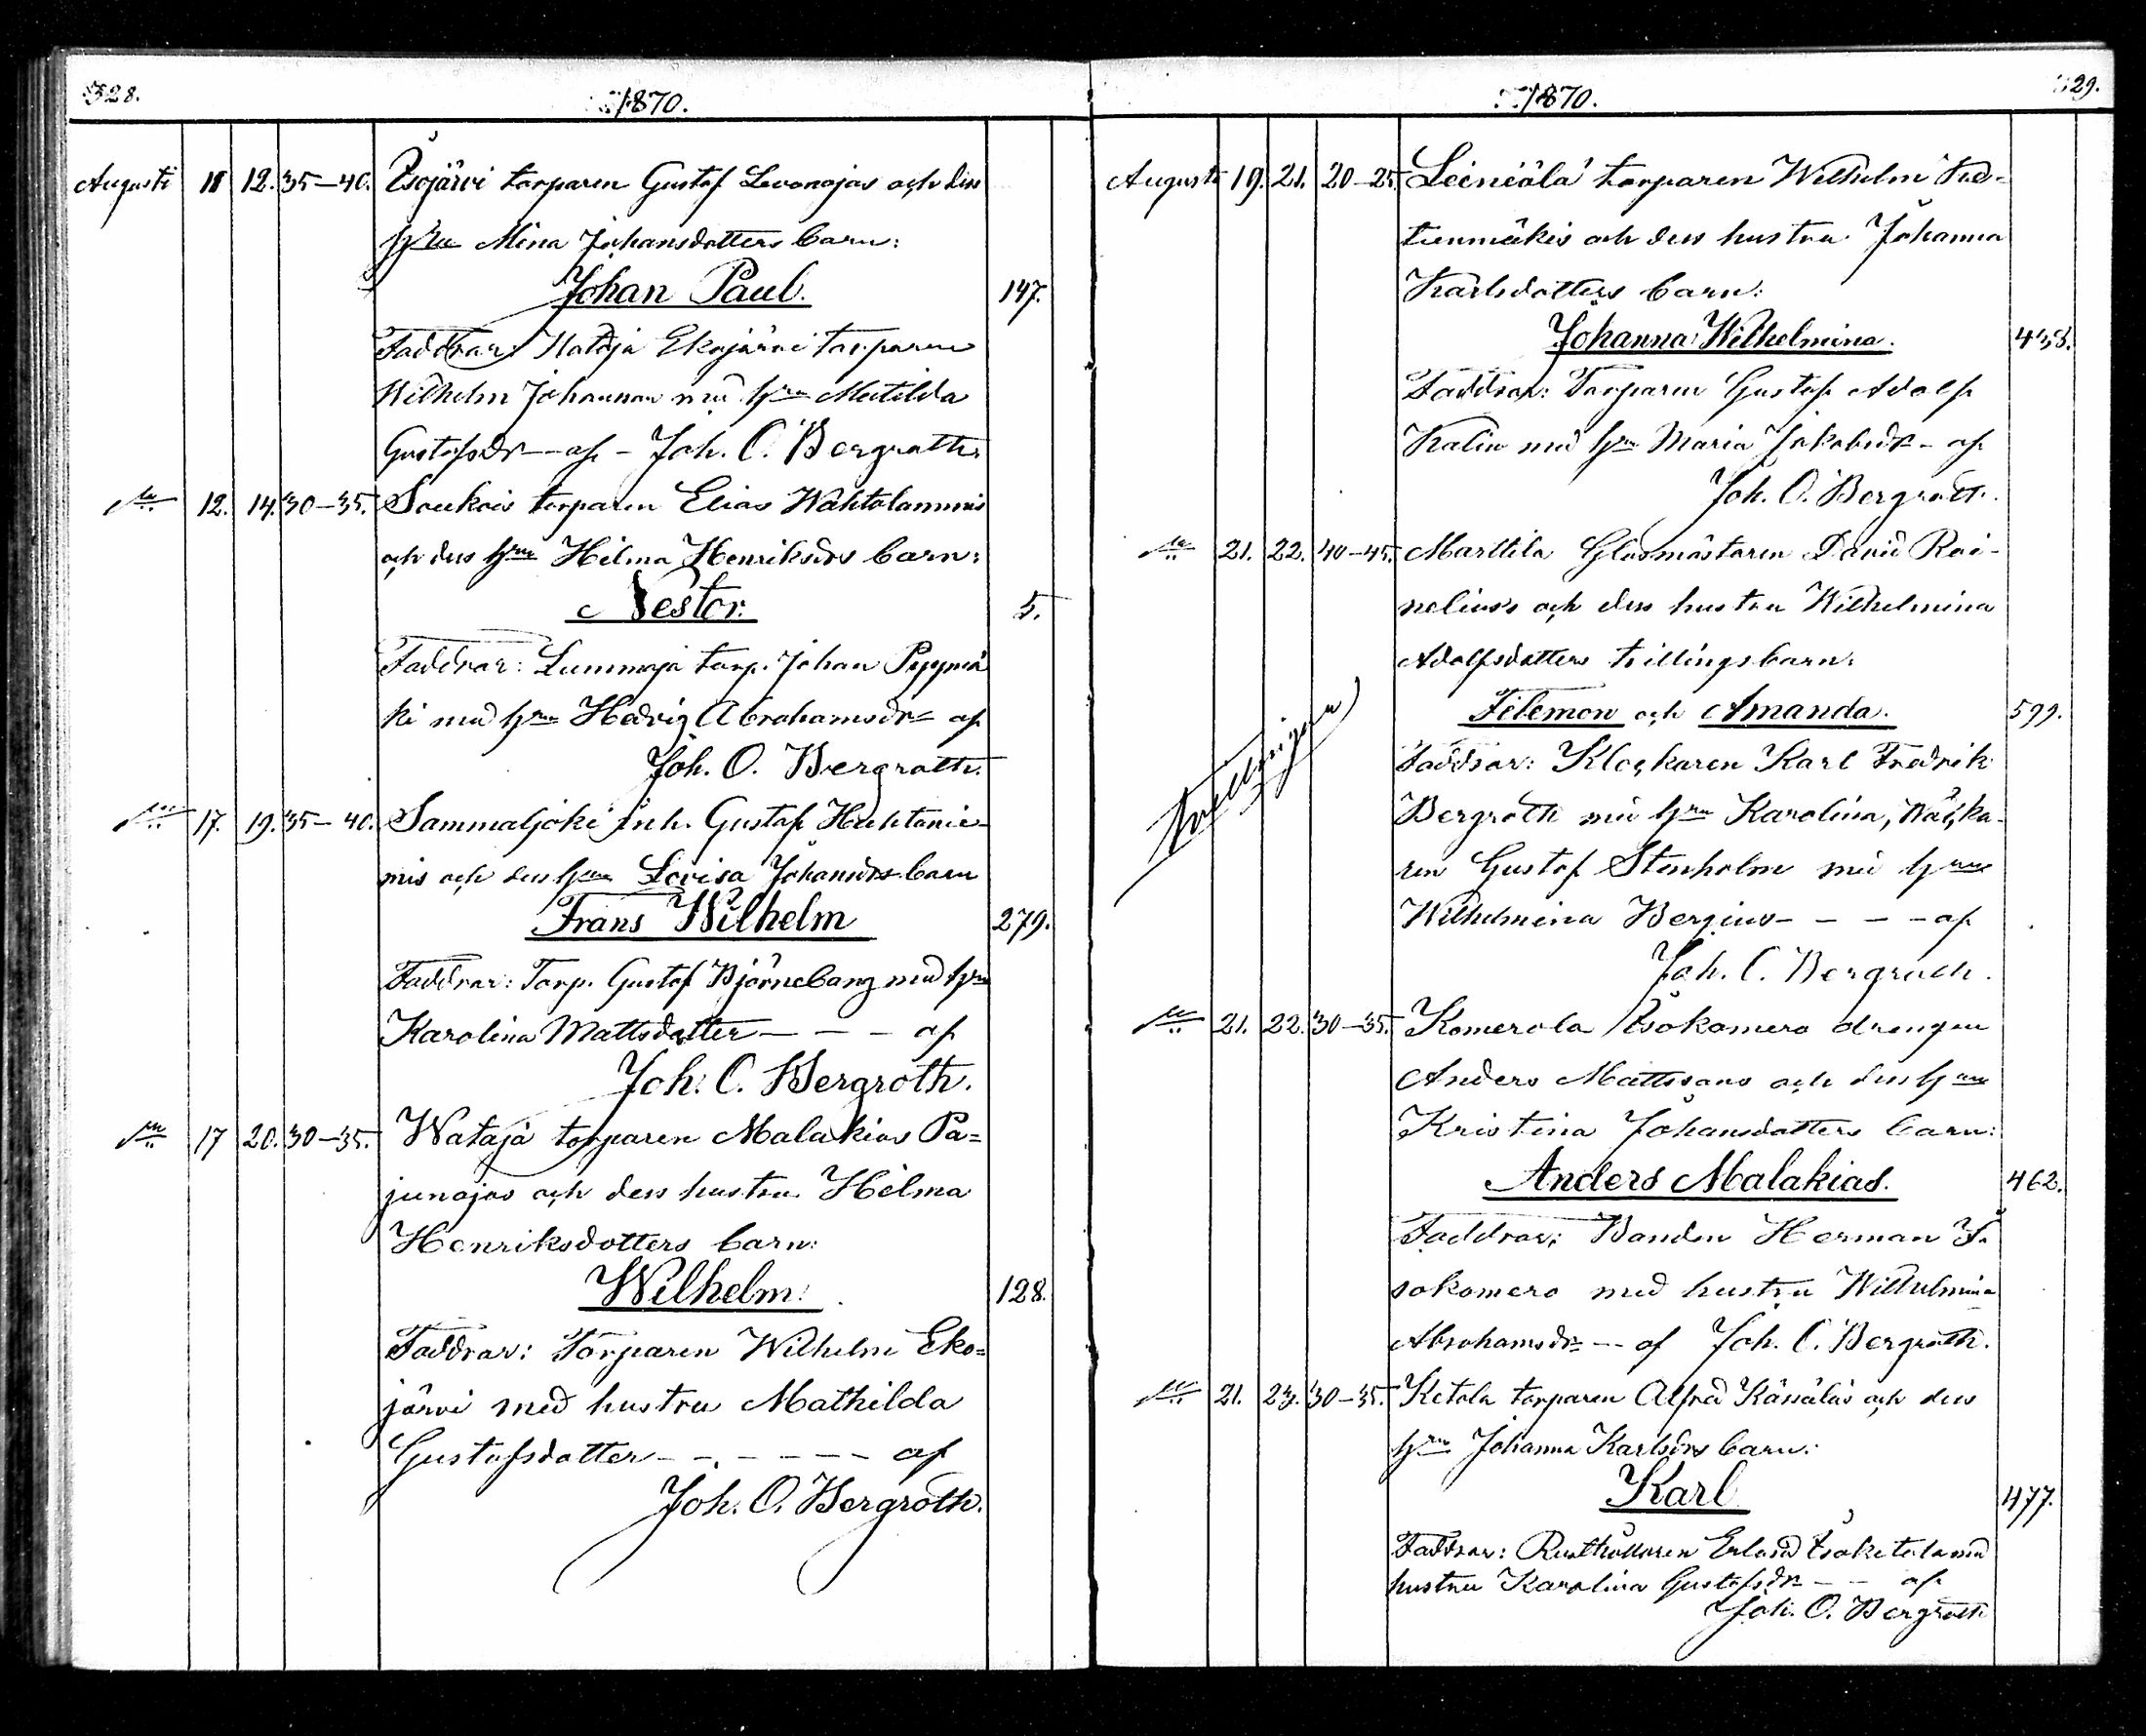 328.
1870.
Augusti 11 12. 35—40. Isojärvi torparen Gustaf Levonojas och dess
hru Mina Johansdotters barn:
Johan Paul. 147.
Faddrar: Wataja Ekojärvi torparen
Wilhelm Johannan med hru Matilda
Gustafsdr — af — Joh. O. Bergroth.
12. 14. 30—35. Soukois torparen Elias Wahtolammis
och dess hru Hilma Henriksdrs barn:
Nestor. 5.
Faddrar: Lummaja torp. Johan Pyymä
ki med hru Hedvig Abrahamsdr af
Joh. O. Bergroth.
17. 19. 35—40. Sammaljoki inh. Gustaf Huhtanie-
mis och dess hru Lovisa Johansdrs barn
Frans Wilhelm 279.
Faddrar: Torp. Gustaf Björnebang med hru
Karolina Mattsdotter — — — af
Joh. O. Bergroth.
17 20. 30—35. Wataja torparen Malakias Pa=
junojas och dess hustru Hilma
Henriksdotters barn:
Wilhelm. 128.
Faddrar: Torparen Wilhelm Eko=
järvi med hustru Mathilda
Gustafsdotter — — — — — af
Joh. O. Bergroth.
329.
1870.
Augusti 19. 21. 20—25. Leiniälä torparen Wilhelm
och dess hustru Johanna
Karlsdotters barn:
Johanna Wilhelmina. 438.
Faddrar: Torparen Gustaf Adolf
Kalin med hru Maria Jakobsdr — af
Joh. O. Bergroth.
21. 22. 40—45. Marttila Glasmästaren David Roi-
nelius's och dess hustru Wilhelmina
Adolfsdotters tvillingsbarn:
Filemon och Amanda. 599.
Faddrar: Klockaren Karl Fredrik
Bergroth med hru Karolina,
Gustaf Stenholm med hru
Wilhelmina Bergius — — — — af
Joh. O. Bergroth.
21. 22. 30—35. Komerola Isokomero drengen
Anders Mattssons och dess hru
Kristina Johansdotters barn:
Anders Malakias. 462.
Faddrar: Bonden Herman I-
sokomero med hustru Wilhelmina
Abrahamsdr — — af Joh. O. Bergroth.
21. 23. 30—35. Ketola torparen Alfred Kässäläs och dess
hru Johanna Karlsdrs barn:
Karl 477.
Faddrar: Rusthållaren Erland Isoketola med
hustru Karolina Gustafsdr — — af
Joh. O. Bergroth